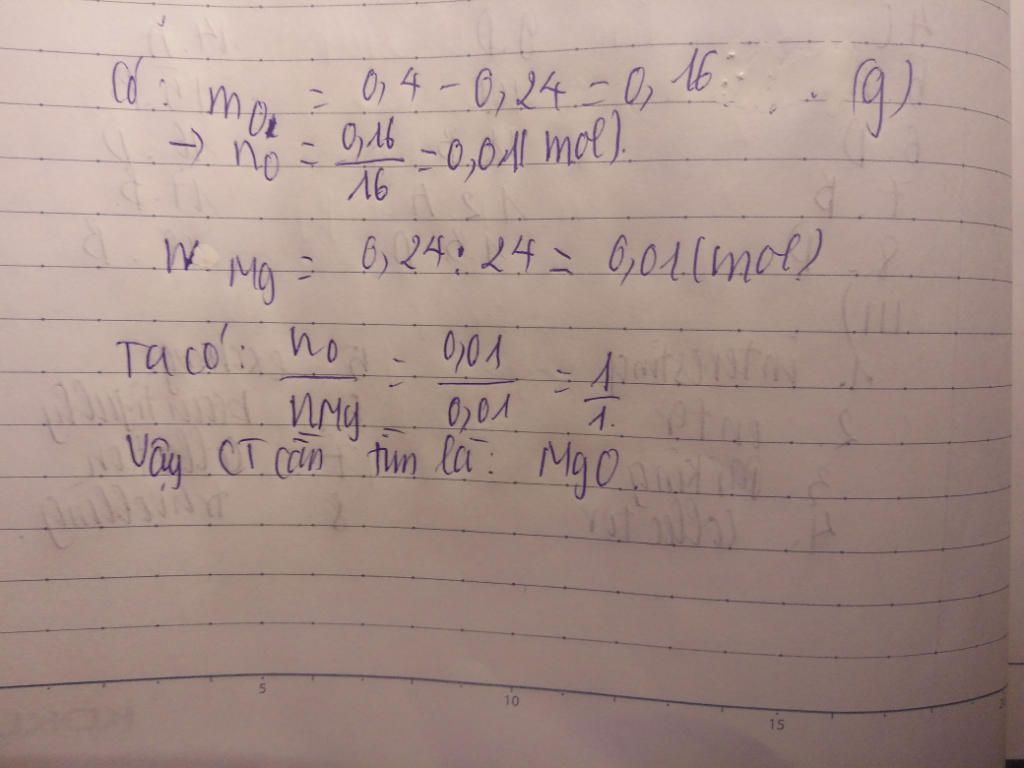 Có: mO = 0,4 - 0,24 = 0,16 (g)
→ nO = 0,16/16 = 0,01(mol).
nMg = 0,24 : 24 = 0,01(mol)
Ta có: nO/nMg = 0,01/0,01 = 1/1.
Vậy CT cần tìm là: MgO
5 10 15